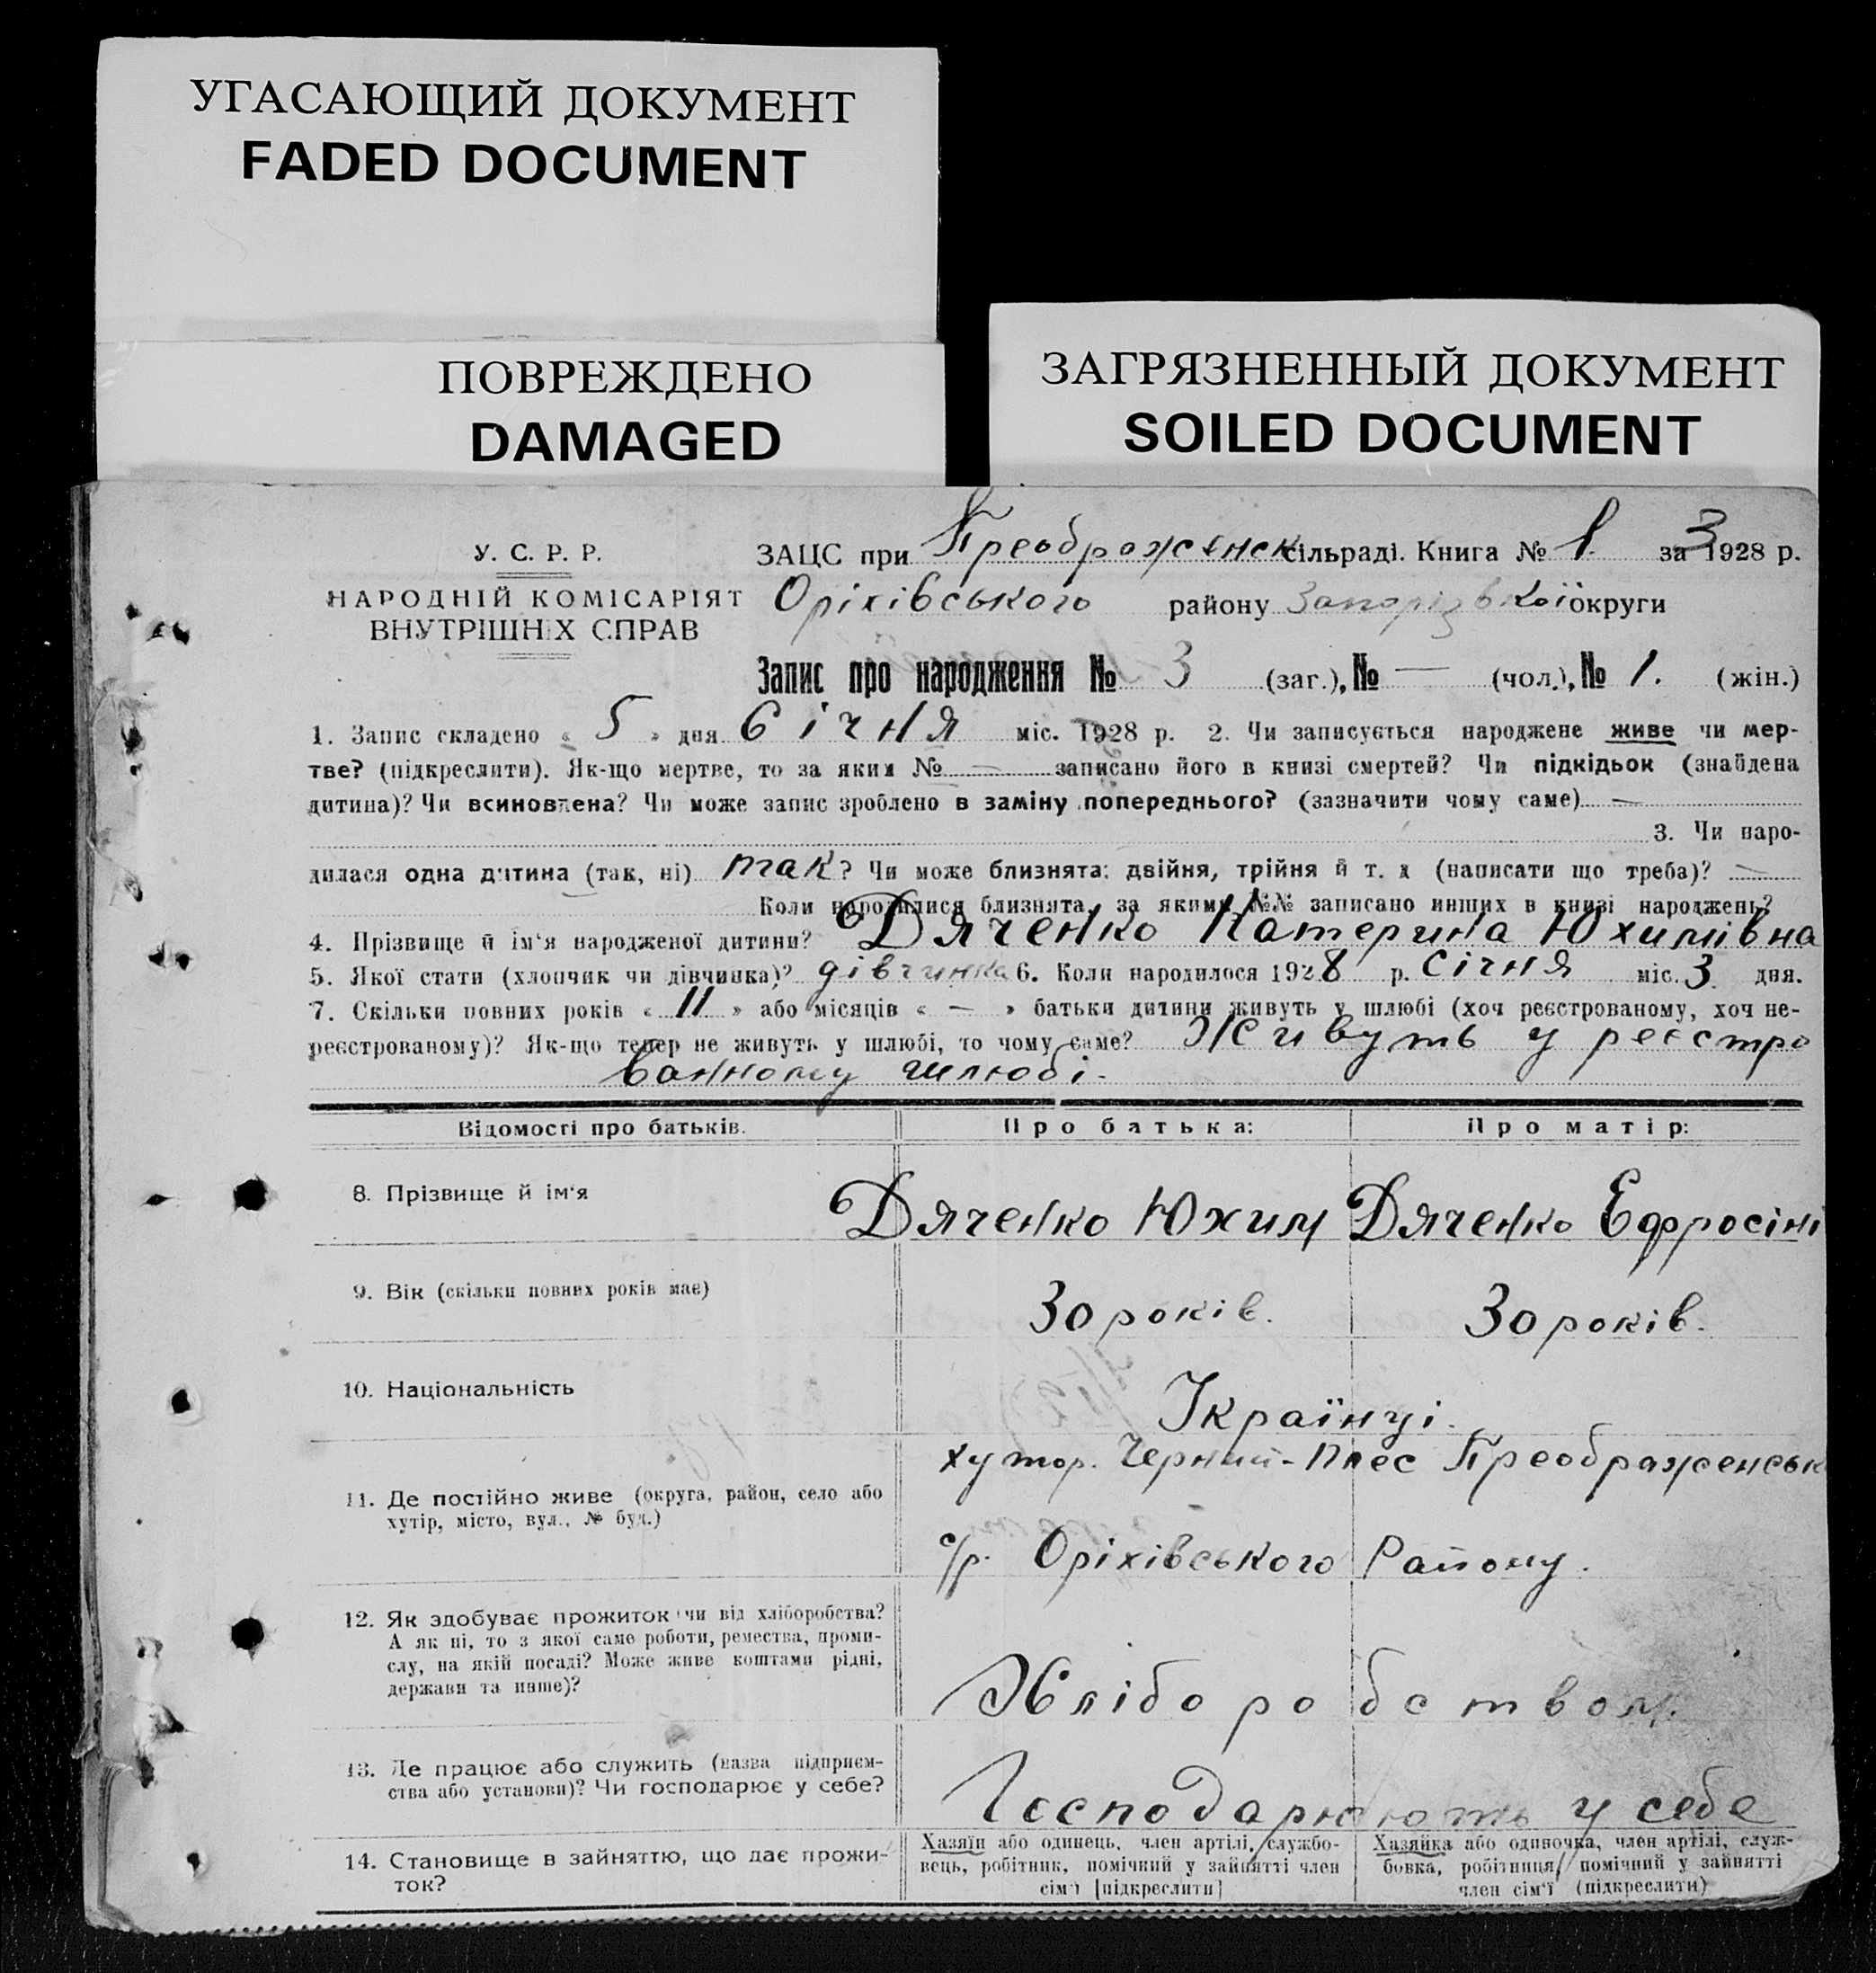 УГАСАЮЩИЙ ДОКУМЕНТ
FADED DOCUMENT
ПОВРЕЖДЕНО
DAMAGED
ЗАГРЯЗНЕННЫЙ ДОКУМЕНТ
SOILED DOCUMENT
У. С. Р. Р.
НАРОДНІЙ КОМІСАРІЯТ
ВНУТРІШНІХ СПРАВ
ЗАЦС при Преображенск сільраді. Книга № 1. за 3 1928 р.
Оріхівського району Запорізької округи
Запис про народження № 3 (заг.), № — (чол.), № 1. (жін.)
1. Запис складено « 5 » дня Січня міс. 1928 р. 2. Чи записується народжене живе чи мер-
тве? (підкреслити). Як-що мертве, то за яким № — записано його в книзі смертей? Чи підкідьок (знайдена
дитина)? Чи всиновлена? Чи може запис зроблено в заміну попереднього? (зазначити чому саме) —
3. Чи наро-
дилася одна дитина (так, ні) так? Чи може близнята: двійня, трійня й т. д (написати що треба)? —
Коли народилися близнята, за якими №№ записано инших в книзі народжень?
4. Прізвище й ім'я народженої дитини? Дяченко Катерина Юхимівна
5. Якої стати (хлопчик чи дівчинка)? дівчинка 6. Коли народилося 1928 р. Січня міс. 3 дня.
7. Скільки повних років « 11 » або місяців « — » батьки дитини живуть у шлюбі (хоч реєстрованому, хоч не-
реєстрованому)? Як-що тепер не живуть у шлюбі, то чому саме? Живуть у реєстро
ванному шлюбі.
Відомості про батьків. Про батька: Про матір:
8. Прізвище й ім'я Дяченко Юхим Дяченко Ефросіні
9. Вік (скільки повних років має) 30 років. 30 років.
10. Національність Українці.
хутор. Черний-Плес Преображенськ
11. Де постійно живе (округа, район, село або
хутір, місто, вул., № буд.)
с/р. Оріхівського Району.
12. Як здобуває прожиток чи від хліборобства?
А як ні, то з якої саме роботи, ремества, проми-
слу, на якій посаді? Може живе коштами рідні,
держави та инше)?
Хліборобством.
13. Де працює або служить (назва підприєм-
ства або установи)? Чи господарює у себе?
Господарюють у себе
14. Становище в зайняттю, що дає прожи-
ток?
Хазяїн або одинець, член артілі, службо-
вець, робітник, помічний у зайнятті член
сім'ї [підкреслити]
Хазяйка або одиночка, член артілі, служ-
бовка, робітниця, помічний у зайнятті
член сім'ї (підкреслити)